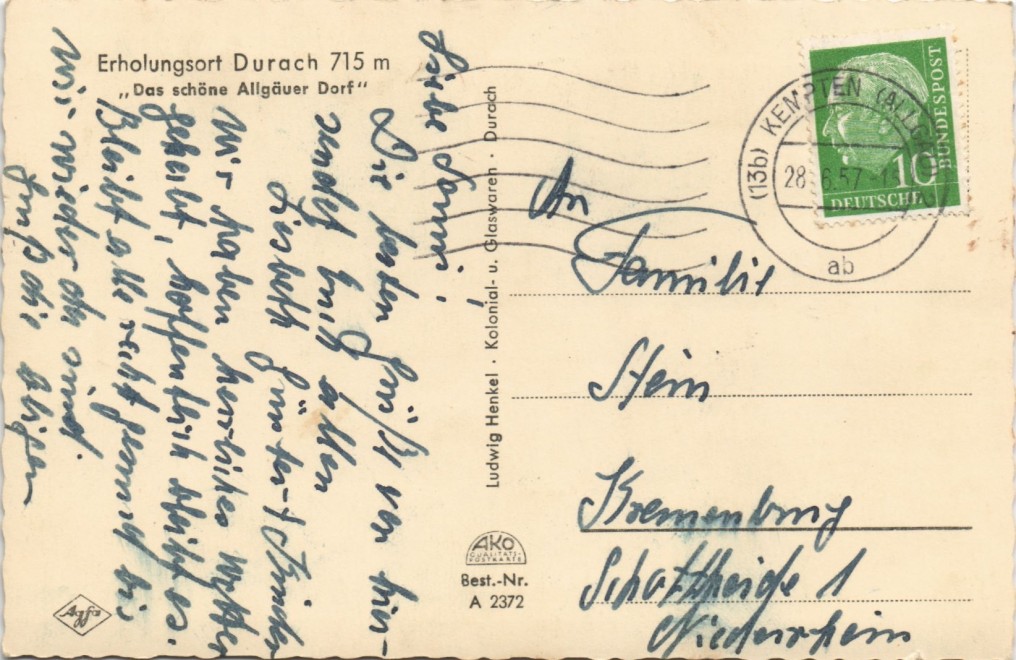 Erholungsort Durach 715 m
„Das schöne Allgäuer Dorf"
Liebe
Die besten Grüße von hier
sendet Euch allen
Lisbeth Günter + Kinder
Wir haben herrliches Wetter
gehabt, hoffentlich bleibt es.
Bleibt alle recht gesund bis
wir wieder da sind.
Gruß die obigen
Ludwig Henkel · Kolonial- u. Glaswaren · Durach
AKO
QUALITÄTS-
POSTKARTE
Best.-Nr.
A 2372
Agfa
(13b) KEMPTEN (ALLGÄU)
28.6.57
ab
10
DEUTSCHE
BUNDESPOST
An
Familie
Stein
Kranenburg
Schottheide 1
Niederrhein